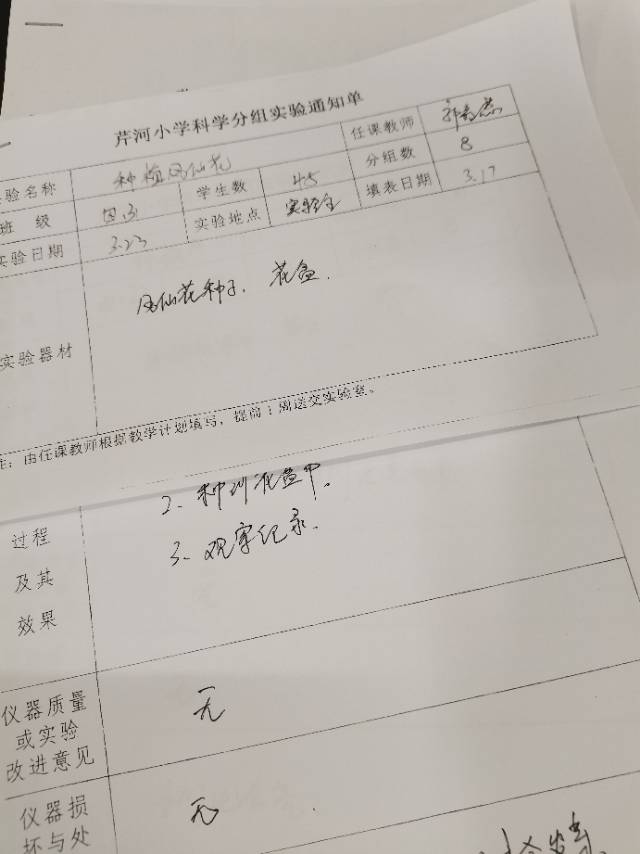 芹河小学科学分组实验通知单
验名称 种植凤仙花 任课教师
班 级 四(3) 学生数 45 分组数 8
实验日期 3.23 实验地点 实验室 填表日期 3.17
实验器材 凤仙花种子、花盆.
注：由任课教师根据教学计划填写，提前1周送交实验室。
2、种到花盆中.
过程 3、观察记录.
及其
效果
仪器质量
或实验 无
改进意见
仪器损 无
坏与处